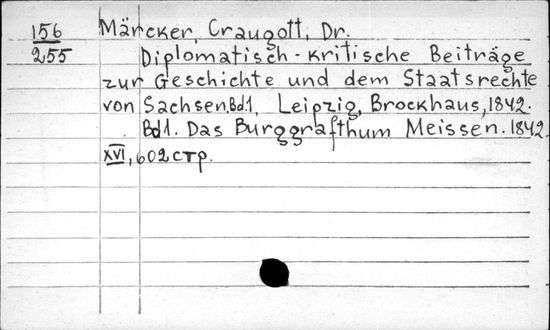 156 Märcker, Craugott, Dr.
255 Diplomatisch-kritische Beiträge
zur Geschichte und dem Staatsrechte
von Sachsen.Bd1, Leipzig, Brockhaus, 1842.
Bd1. Das Burggrafthum Meissen. 1842.
XVI, 602 стр.